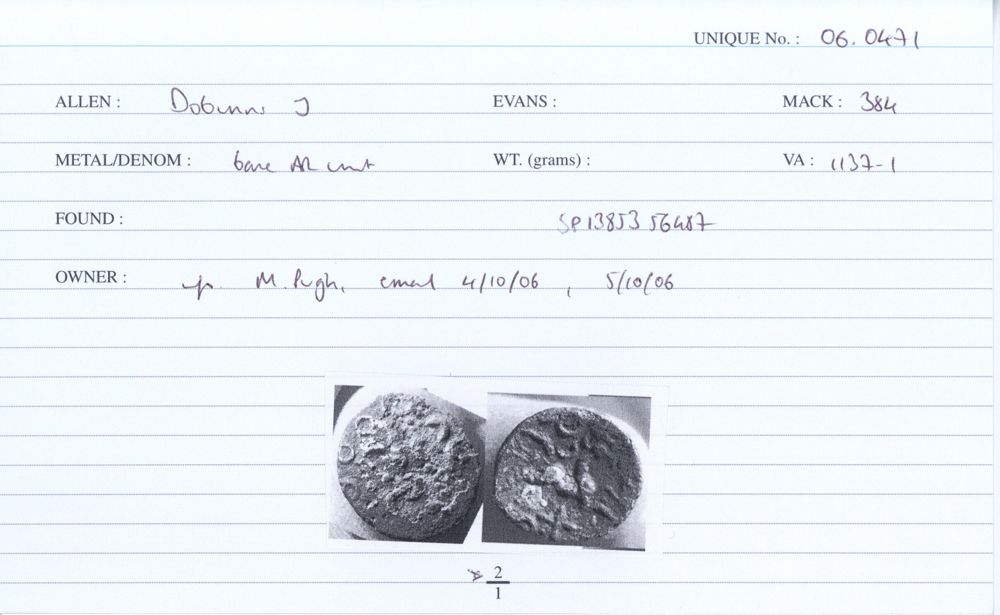 UNIQUE No. : 06.0471
ALLEN : Dobunni J EVANS : MACK : 384
METAL/DENOM : base AR unit WT. (grams) : VA : 1137-1
FOUND : SP 13853 56487
OWNER : M. Pugh, email 4/10/06, 5/10/06
2
1